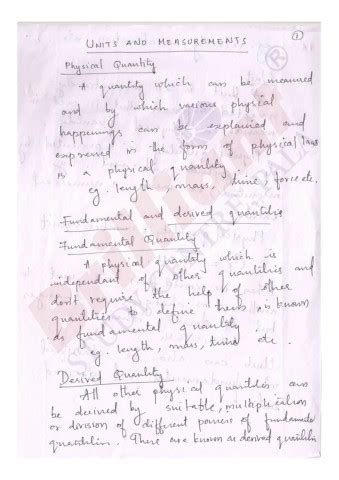 UNITS AND MEASUREMENTS
1
Physical Quantity
A quantity which can be measured
and by which various physical
happenings can be explained and
expressed in the form of physical laws
is a physical quantity.
eg. length, mass, time, force etc.
Fundamental and derived quantities
Fundamental Quantity
A physical quantity which is
independant of other quantities and
don't require the help of other
quantities to define them is known
as fundamental quantity
eg. length, mass, time etc.
Derived Quantity
All other physical quantities can
be derived by suitable, multiplication
or division of different powers of fundamental
quantities. These are known as derived quantities